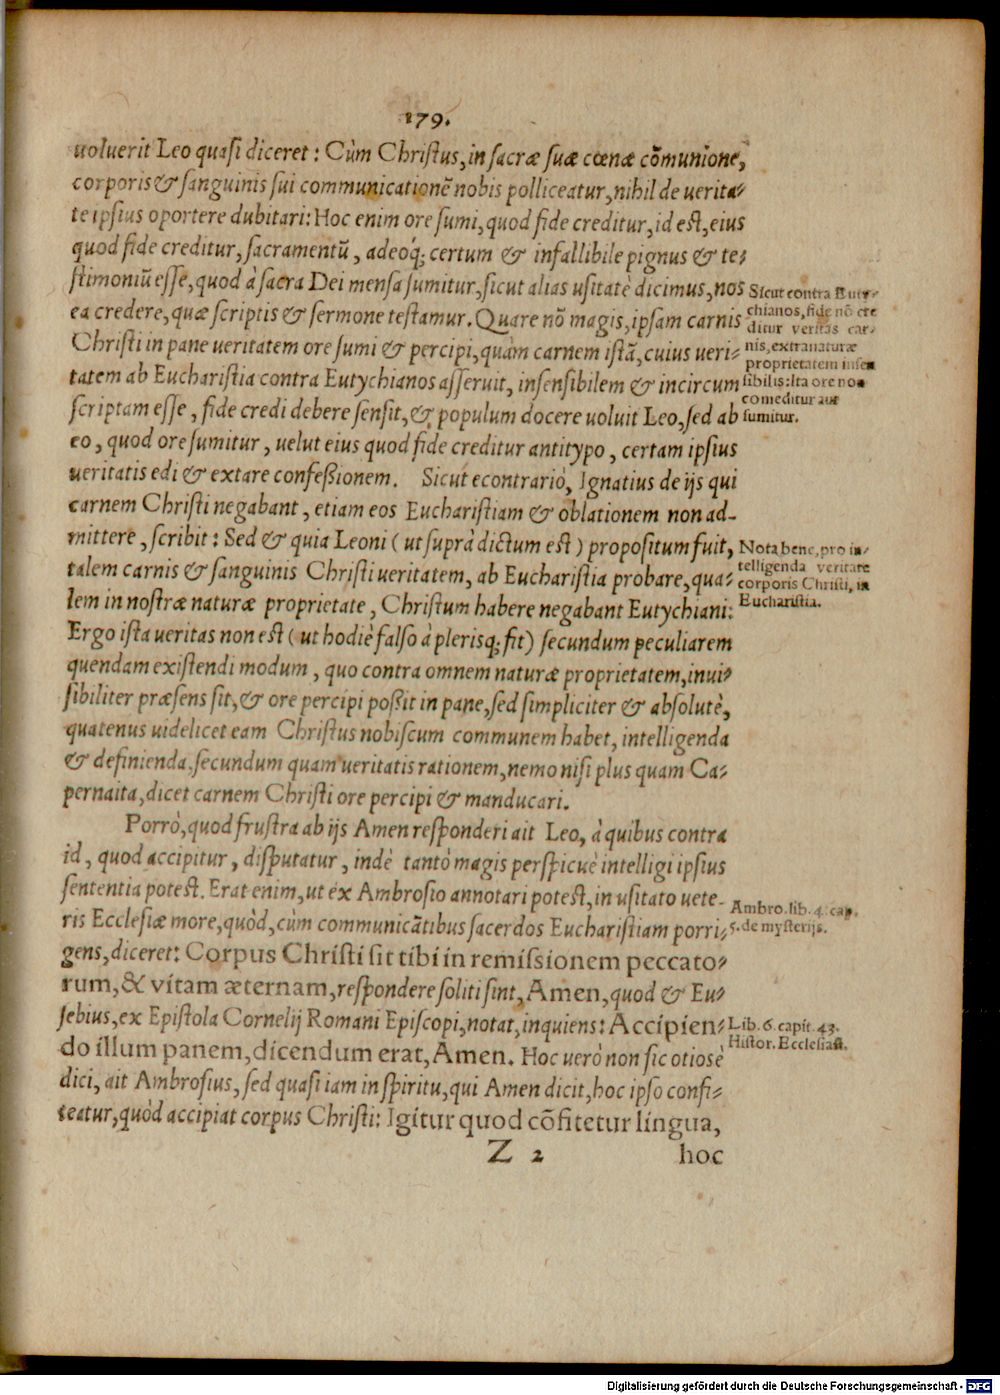 179.
uoluerit Leo quasi diceret: Cùm Christus, in sacræ suæ cœnæ cōmunione,
corporis & sanguinis sui communicationē nobis polliceatur, nihil de uerita-
te ipsius oportere dubitari: Hoc enim ore sumi, quod fide creditur, id est, eius
quod fide creditur, sacramentū, adeóq; certum & infallibile pignus & te-
stimoniū esse, quod à sacra Dei mensa sumitur, sicut alias usitatè dicimus, nos
ea credere, quæ scriptis & sermone testamur. Quare nō magis, ipsam carnis
Christi in pane ueritatem ore sumi & percipi, quàm carnem istā, cuius ueri-
tatem ab Eucharistia contra Eutychianos asseruit, insensibilem & incircum
scriptam esse, fide credi debere sensit, & populum docere uoluit Leo, sed ab
eo, quod ore sumitur, uelut eius quod fide creditur antitypo, certam ipsius
ueritatis edi & extare confeßionem. Sicut econtrariò, Ignatius de ijs qui
carnem Christi negabant, etiam eos Eucharistiam & oblationem non ad-
mittere, scribit: Sed & quia Leoni (ut suprà dictum est) propositum fuit,
talem carnis & sanguinis Christi ueritatem, ab Eucharistia probare, qua-
lem in nostræ naturæ proprietate, Christum habere negabant Eutychiani:
Ergo ista ueritas non est (ut hodiè falso à plerisq; fit) secundum peculiarem
quendam existendi modum, quo contra omnem naturæ proprietatem, inui-
sibiliter præsens sit, & ore percipi poßit in pane, sed simpliciter & absolutè,
quatenus uidelicet eam Christus nobiscum communem habet, intelligenda
& definienda, secundum quam ueritatis rationem, nemo nisi plus quam Ca-
pernaita, dicet carnem Christi ore percipi & manducari.
Porrò, quod frustra ab ijs Amen responderi ait Leo, à quibus contra
id, quod accipitur, disputatur, indè tantò magis perspicuè intelligi ipsius
sententia potest. Erat enim, ut ex Ambrosio annotari potest, in usitato uete-
ris Ecclesiæ more, quòd, cùm communicātibus sacerdos Eucharistiam porri-
gens, diceret: Corpus Christi sit tibi in remissionem peccato-
rum, & vitam æternam, respondere soliti sint, Amen, quod & Eu-
sebius, ex Epistola Cornelij Romani Episcopi, notat, inquiens: Accipien-
do illum panem, dicendum erat, Amen. Hoc uerò non sic otiosè
dici, ait Ambrosius, sed quasi iam in spiritu, qui Amen dicit, hoc ipso confi-
teatur, quòd accipiat corpus Christi: Igitur quod cōfitetur lingua,
Z 2 hoc
Sicut contra Euty-
chianos, fide nō cre
ditur veritas car-
nis, extra naturæ
proprietatem insen
sibilis: Ita ore non
comeditur aut
sumitur.
Nota bene, pro in-
telligenda veritate
corporis Christi, in
Eucharistia.
Ambro. lib. 4. cap.
5. de mysterijs.
Lib. 6. capit. 43.
Histor. Ecclesiast.
Digitalisierung gefördert durch die Deutsche Forschungsgemeinschaft - DFG